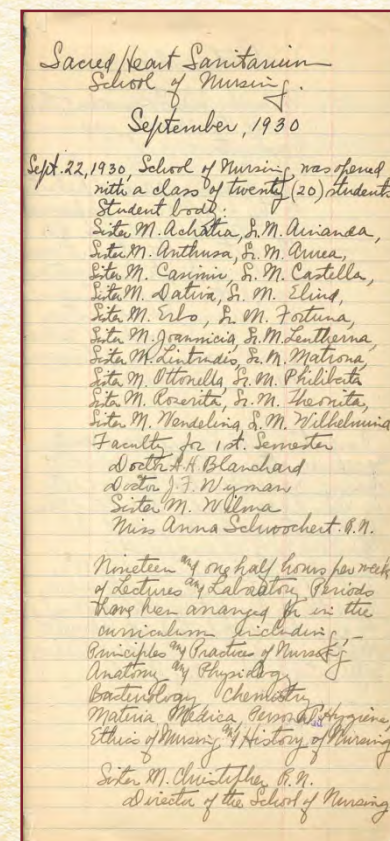 Sacred Heart Sanitarium
School of Nursing.
September, 1930
Sept. 22, 1930, School of Nursing was opened
with a class of twenty (20) students
Student body:
Sister M. Achatia, Sr. M. Amanda,
Sister M. Anthusa, Sr. M. Aurea,
Sister M. Casimir, Sr. M. Castella,
Sister M. Dativa, Sr. M. Elind,
Sister M. Erbo, Sr. M. Fortuna,
Sister M. Joannicia, Sr. M. Lentherna,
Sister M. Lintrudis, Sr. M. Matrona,
Sister M. Ottonella, Sr. M. Philiberta
Sister M. Roserita, Sr. M. Theonita,
Sister M. Wendelina, S. M. Wilhelmina
Faculty for 1st. Semester
Doctor A. H. Blanchard
Doctor J. F. Wyman
Sister M. Wilma
Miss Anna Schwoochert. R.N.
Nineteen and one half hours per week
of Lectures and Laboratory Periods
have been arranged for in the
curriculum including, –
Principles and Practices of Nursing
Anatomy and Physiology
Bacteriology Chemistry
Materia Medica, Personal Hygiene,
Ethics of Nursing and History of Nursing
Sister M. Christopher R.N.
Director of the School of Nursing